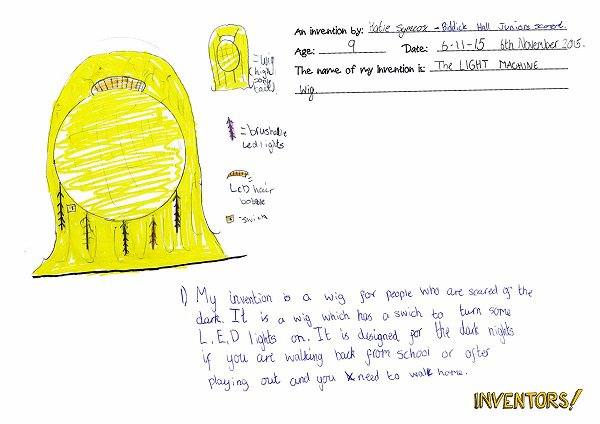 An invention by: Katie Symcox - Biddick Hall Juniors
Age: 9 Date: 6-11-15 6th November 2015.
The name of my invention is: The LIGHT MACHINE
Wig
= Wig
(high
pony
tail)
= brushable
Led lights
LeD hair
bobble
- swich
1) My invention is a wig for people who are scared of the
dark. It is a wig which has a swich to turn some
L.E.D lights on. It is designed for the dark nights
if you are walking back from school or after
playing out and you need to walk home.
INVENTORS!